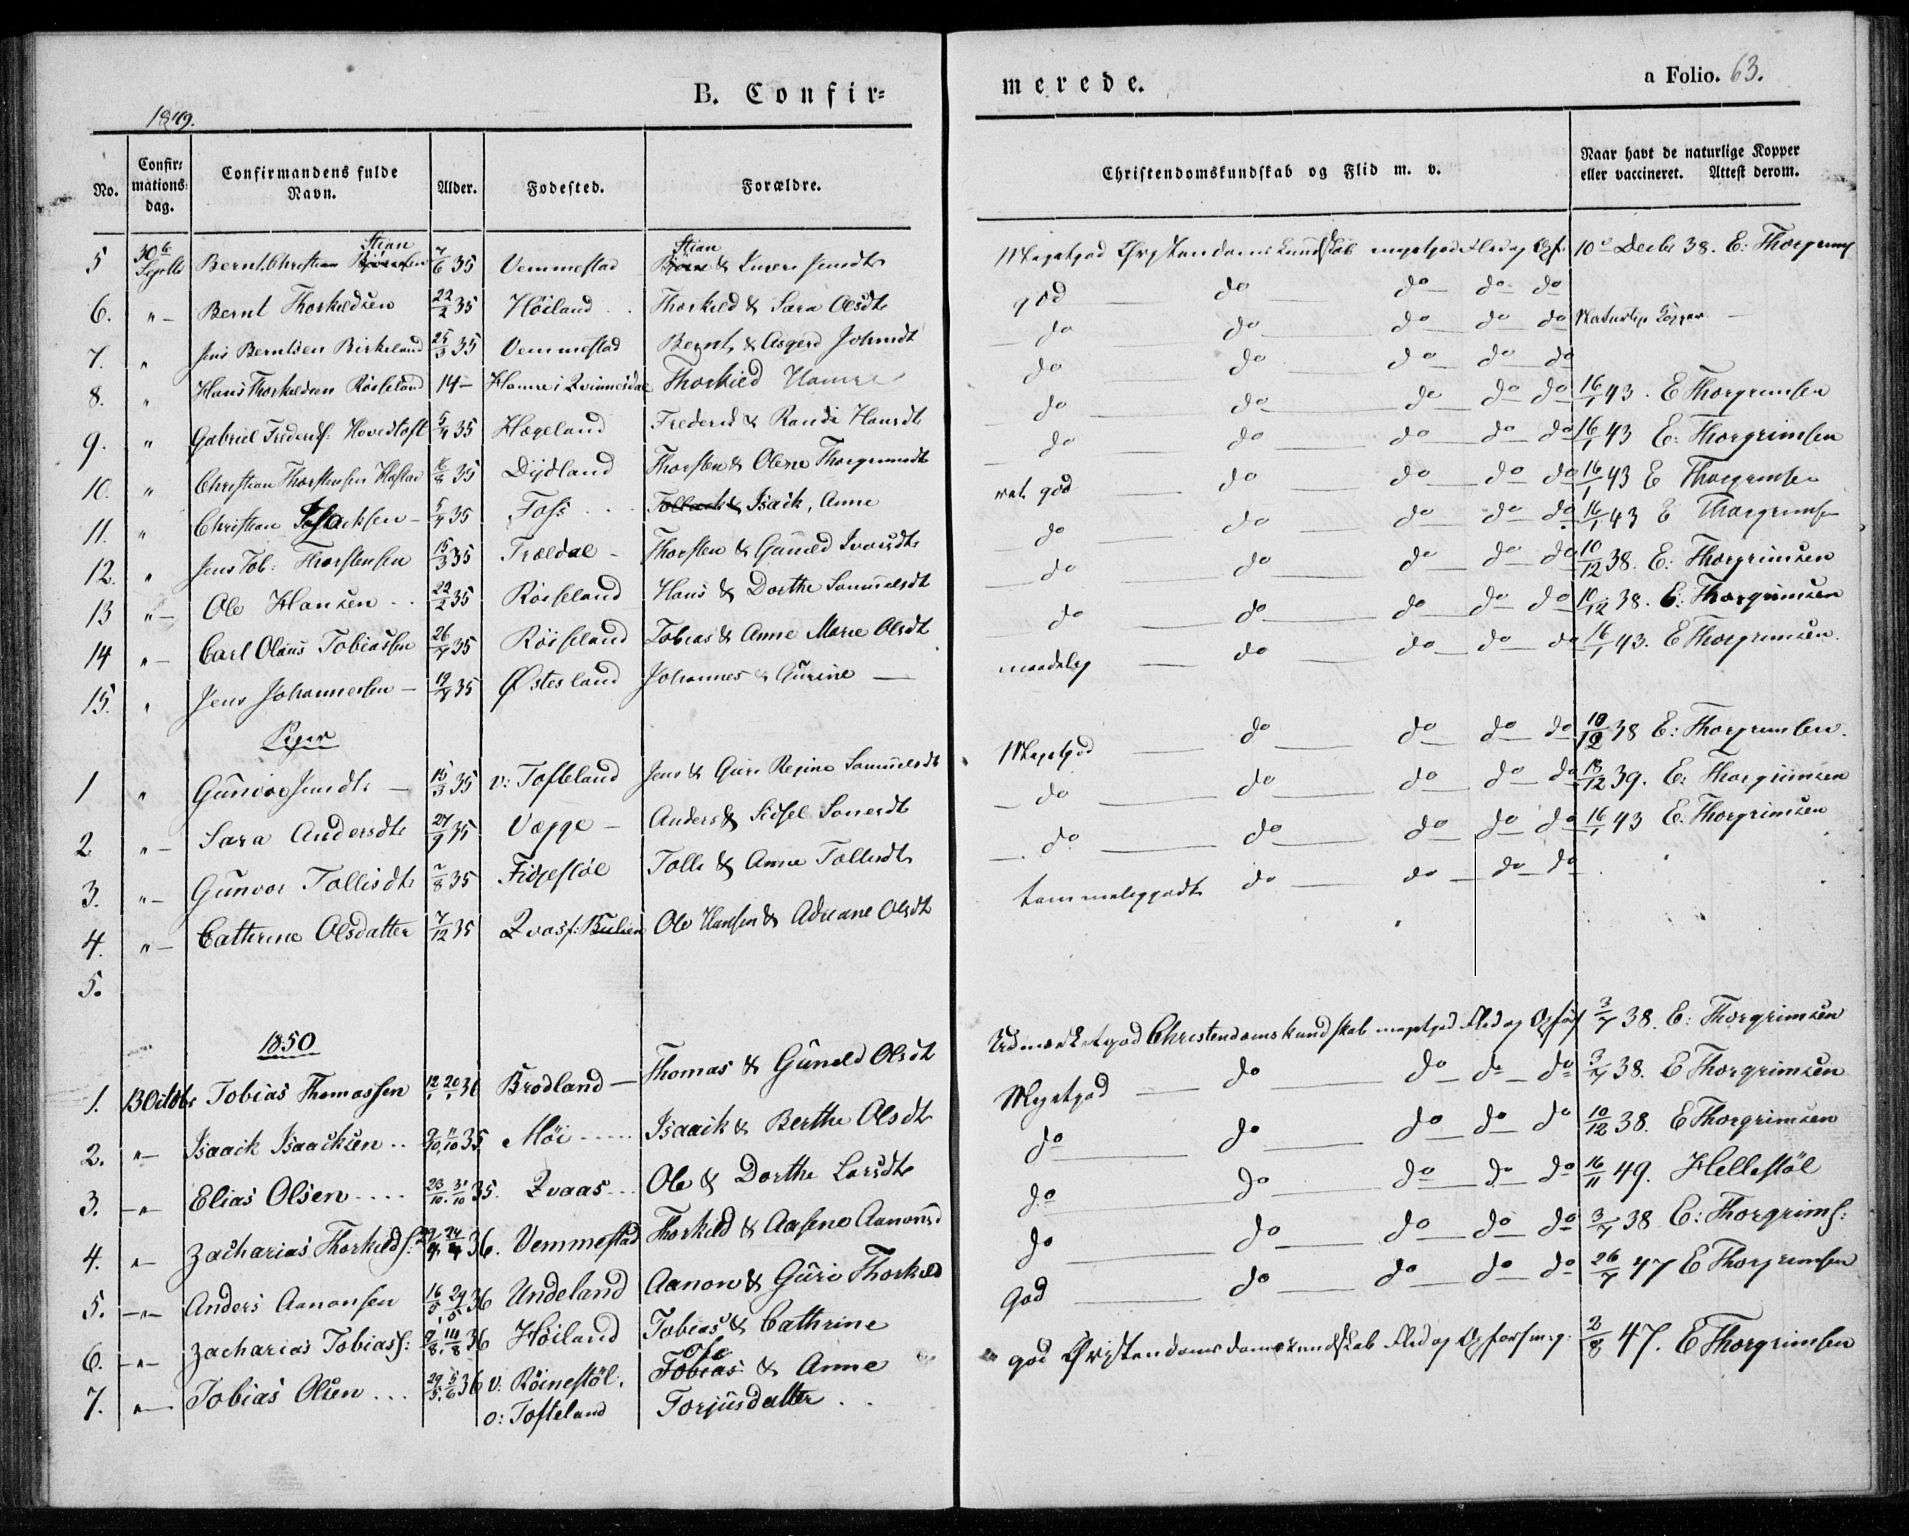 B. Confir=
merede.
a Folio. 63.
1849.
No.
Confir= mations= dag.
Confirmandens fulde Navn.
Alder.
Fodested.
Forældre.
Christendomskundskab og Flid m. v.
Naar havt de naturlige Kopper eller vaccineret. Attest derom.
5 30 Bernt Christian Stian 7/6 35 Vemmestad Stian & 38. E:
6. "— Bernt Thorkildsen 22/2 35 Høiland Thorkild & Sara Olsdt god do do do do
7. " Jens Berntsen Birkeland 25/3 35 Vemmestad Bernt & Asgerd do do do do do
8. " Hans Thorkildsen Røiseland 14— Hamre i Qvinnesdal Thorkied Hamre do do do do do
9. " Gabriel Hovedtoft 5/4 35 Hægeland Frederik & Randi Hansdt do do do do do 16/1 43. E Thorgrimsen
10. " Christian Thorstensen 16/8 35 Dydland Thorsten & Olene do do do do do 16/1 43 E: Thorgrimsen
11. " Christian Isaacksen 5/7 35 Foss Isaik, Anne god do do do do 16/1 43 E Thorgrimsen
12. " Jens Tob: Thorstensen 15/3 35 Trældal Thorsten & Guneld do do do do do 16/1 43 E Thorgrimsen
13 "— Ole Hansen 22/2 35 Røiseland Hans & Dorthe Samuelsdt do do do do do 10/12 38. E: Thorgrimsen
14 "— Carl Olaus Tobiassen 26/7 35 Røiseland Tobias & Anne Marie Olsdt do do do do do 10/12 38. E: Thorgrimsen
15. " Jens Johannessen 35 Østesland Johannes & Gurine maadelig do do do do 16/1 43. E Thorgrimsen.
Piger
1 " Gunvor Jensdt 15/3 35 v: Tofteland Jens & Guri Regine Samuelsdt Megetgod do do do do 10/12 38 E: Thorgrimsen.
2 "— Sara Andersdt 27/9 35 Vegge Anders & Sidsel do do do do do 13/12 39. E: Thorgrimsen
3. "— Gunvor Tollisdt 7/8 35 Fidjestøl Tolli & Anne Tollisdt do do do do do 16/1 43 E: Thorgrimsen
4. "— Cathrine Olsdatter 7/12 35 Ole Hansen & Adriane Olsdt temmeliggodt do do do do
5.
1850
1. 13 Octbr Tobias Thomassen 12/1 20/1 36 Brodland Thomas & Guneld Olsdt Udmærketgod Christendomskundskab megetgod Flid og Opførs 3/7 38. E: Thorgrimsen
2. "— Isaack Isaacksen 9/10 11/10 35 Møi Isaaik & Berthe Olsdt Megetgod do do do do 3/7 38. E Thorgrimsen
3. —"— Elias Olsen 23/10 31/10 35. Qvaas Ole & Dorthe Larsdt do do do do do 10/12 38. E Thorgrimsen
4. "— Zacharias Thorkilds: 24/4 36. Vemmestad Thorkild & Aasene Aanonsd do do do do do 16/11 49. Hellestøl
5. —"— Anders Aanonsen 16/5 29/5 36 Undeland Aanon & Guri Thorkild do do do do do 3/7 38 E: Thorgrims:
6. —"— Zacharias Tobiass: 9/8 14/8 36 Høiland Tobias & Cathrine God do do do do 26/7 47 E Thorgrimsen
7. "— Tobias Olsen 29/5 5/6 36 v: Røinestøl. Ole Tobias & Anne god Flid og Opførs m: g: 2/8 47. E Thorgrimsen
o: Tofteland Torjusdatter